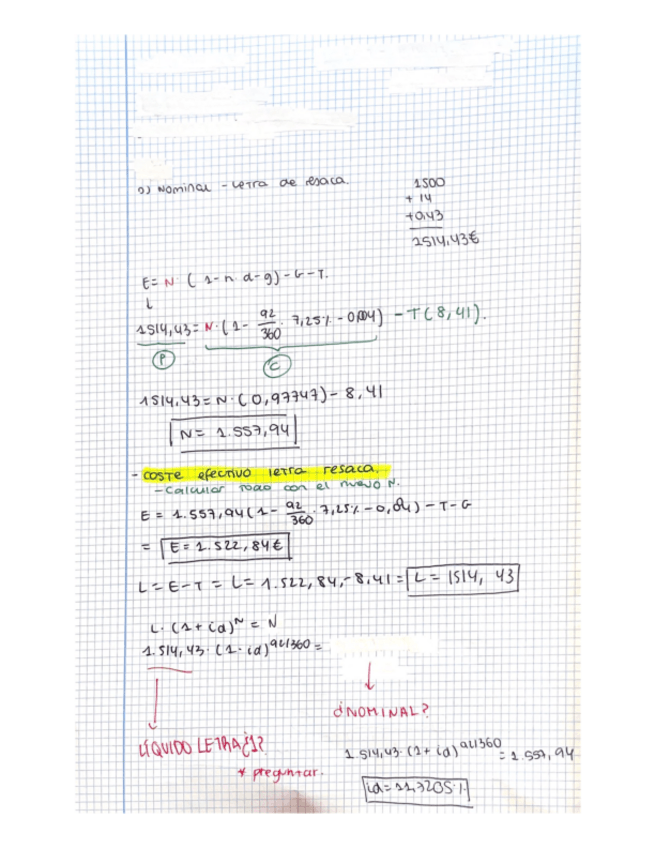 b) Nominal - Letra de resaca.
1500
+ 14
+0,43
1514,43€
E= N· (1-n·d-g)-G-T.
↓
1514,43= N·(1- 92/360 · 7,25% - 0,004) - T(8,41).
P
C
1514,43= N·(0,97747)- 8,41
N= 1.557,94
- COSTE efectivo letra resaca.
- Calcular todo con el nuevo N.
E = 1.557,94(1- 92/360 · 7,25% - 0,04) - T - G
= E= 1.522,84€
L = E-T = L= 1.522,84,-8,41 = L= 1514,43
L· (1+id)ᴺ = N
1.514,43· (1·id)^92/360 =
¿NOMINAL?
LÍQUIDO LETRA ¿1?
* preguntar.
1.514,43·(1+id)^92/360 = 1.557,94
id= 11,7205%